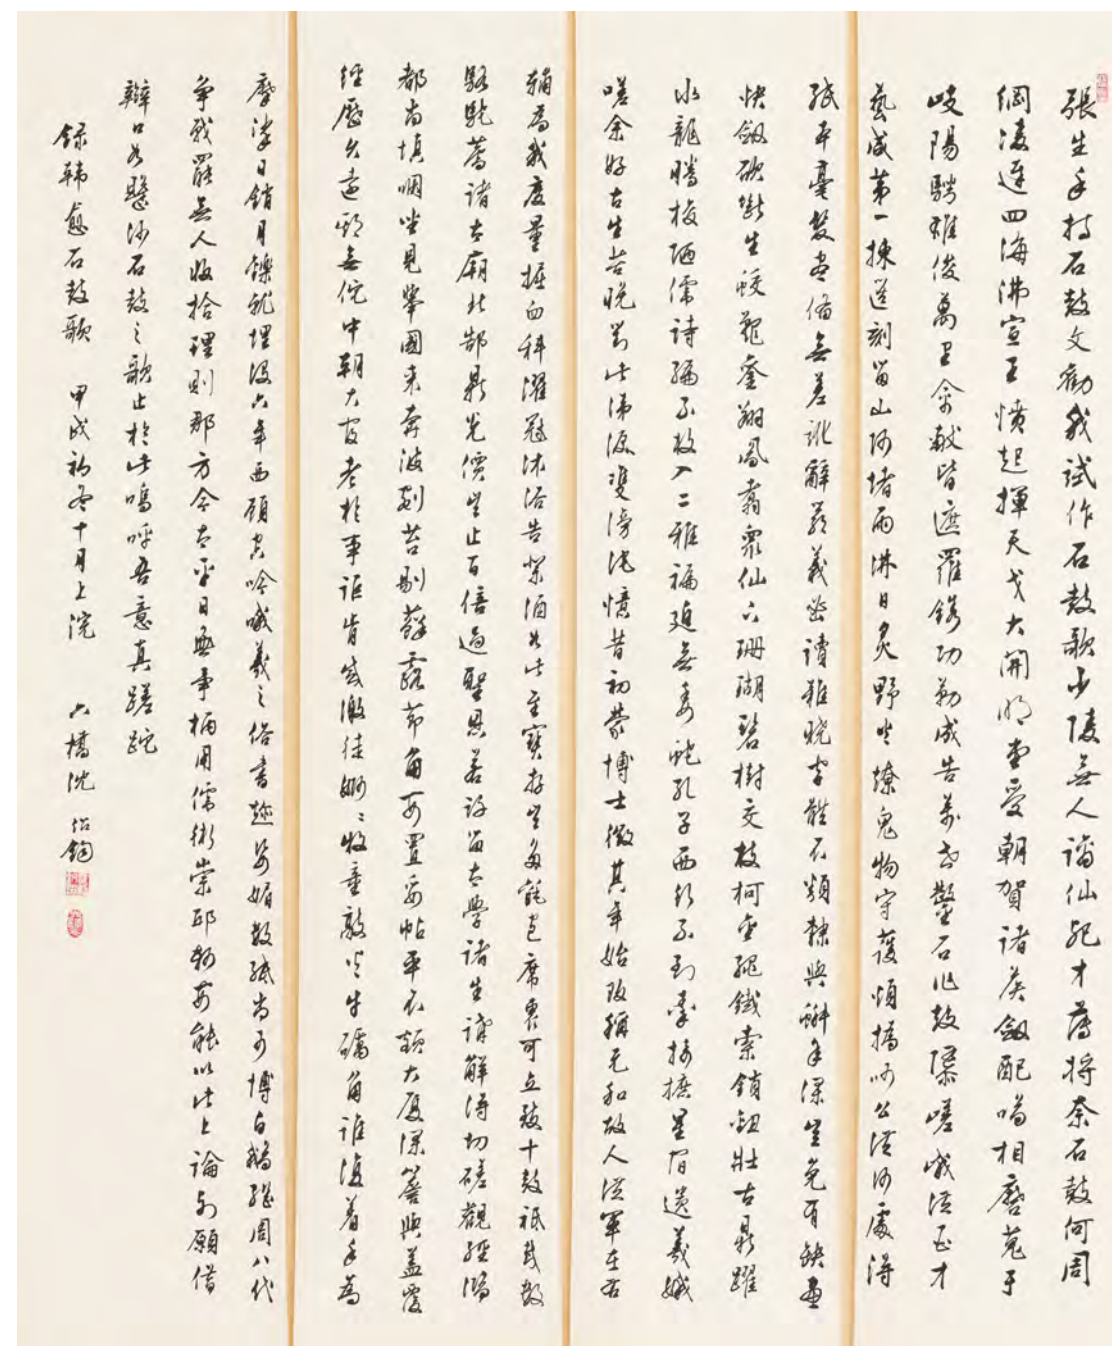 張生手持石鼓文勸我試作石鼓歌少陵無人謫仙死才薄將奈石鼓何周
綱凌遲四海沸宣王憤起揮天戈大開明堂受朝賀諸侯劍配鳴相磨蒐于
岐陽騁雄俊萬里禽獸皆遮羅鐫功勒成告萬世鑿石作鼓隳嵯峨從臣才
藝咸第一揀選刻留山阿堵雨淋日炙野火燎鬼物守護煩撝呵公從何處得
紙本毫髮盡備無差訛辭嚴義密讀難曉字體不類隸與蝌年深豈免有缺畫
快劍砍斷生蛟鼉鸞翔鳳翥眾仙下珊瑚碧樹交枝柯金繩鐵索鎖鈕壯古鼎躍
水龍騰梭陋儒詩編不收入二雅褊迫無委蛇孔子西行不到秦掎摭星宿遺羲娥
嗟余好古生苦晚對此涕淚雙滂沱憶昔初蒙博士徵其年始改稱元和故人從軍在右
輔為我度量掘臼科濯冠沐浴告祭酒如此至寶存豈多氈包席裹可立致十鼓祇載數
駱駝薦諸太廟比郜鼎光價豈止百倍過聖恩若許留太學諸生講解得切磋觀經鴻
都尚填咽坐見舉國來奔波剜苔剔蘚露節角安置妥帖平不頗大廈深簷與蓋覆
經歷久遠期無佗中朝大官老於事詎肯感激徒婀〻牧童敲火牛礪角誰復着手為
摩挲日銷月鑠就埋沒六年西顧空吟哦羲之俗書趁姿媚數紙尚可博白鵝繼周八代
爭戰罷無人收拾理則那方今太平日無事柄用儒術崇邱軻安能以此上論列願借
辯口如懸沙石鼓之歌止於此嗚呼吾意真蹉跎
錄韓愈石鼓歌 甲戌初冬十月上浣 六橋沈紹鈞